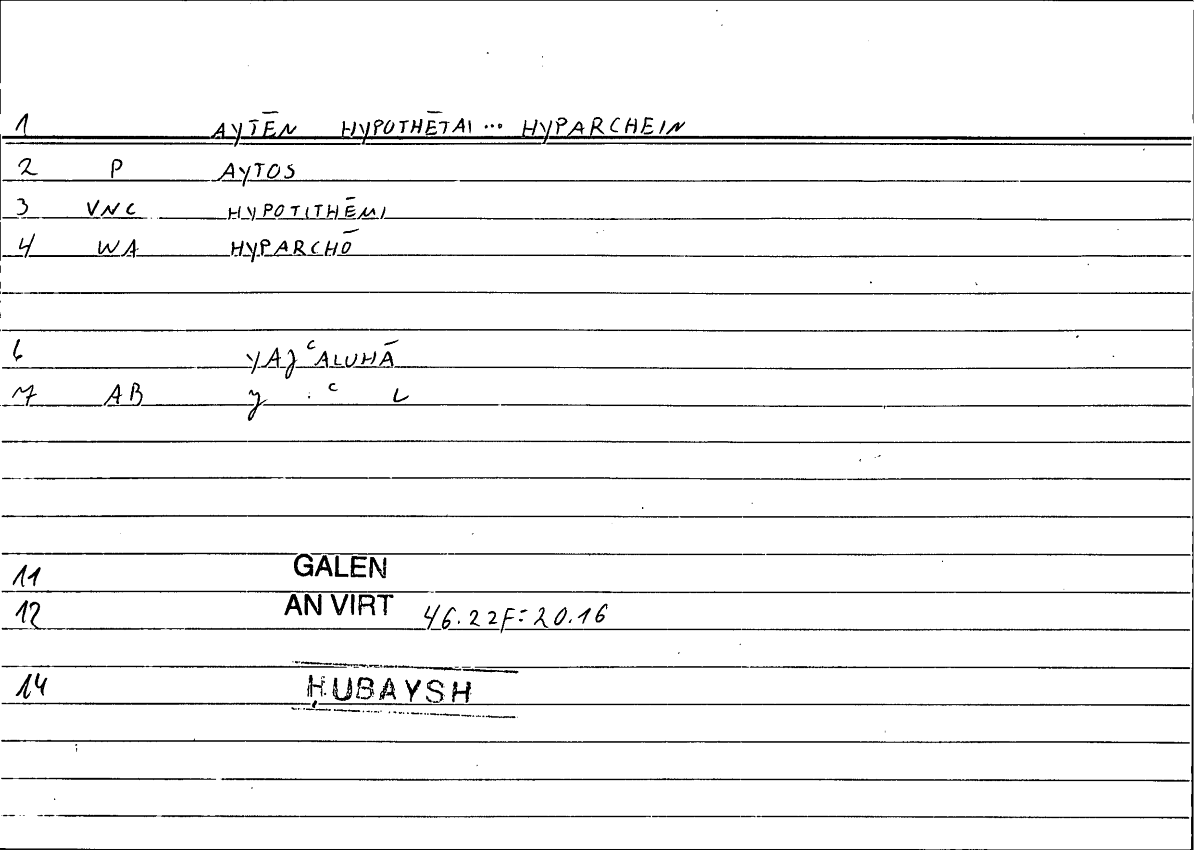 1 AYTĒN HYPOTHĒTAI ... HYPARCHEIN
2 P AYTOS
3 VNC HYPOTITHĒMI
4 WA HYPARCHŌ
6 YAJ ͨALUHĀ
7 AB J . ͨ L
11 GALEN
12 AN VIRT 46.22F=20.16
14 ḤUBAYSH